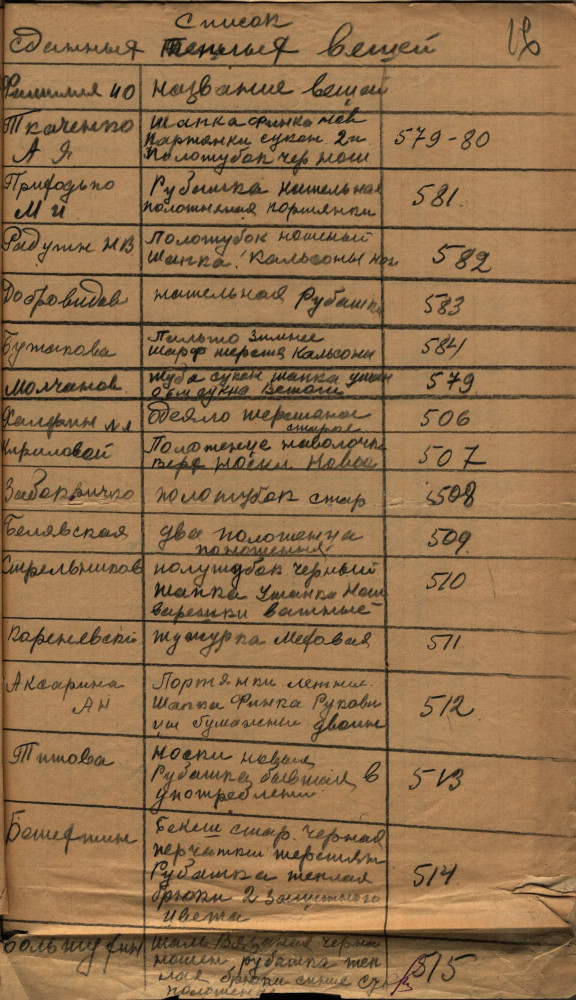 Список
сданныя теплыя вещей
16
Фамилия ИО название вещей
Ткаченко А Я
шапка финка нев
партянки сукон. 2 п
Полошубок чер нош
579-80
Приходько М И
Рубашка нательная
полотняная портянки
581.
Радутин НВ
Полошубок ношеный
шапка. Кальсоны нов
582
Добровидов
нательная Рубашка
583
Бутакова
Пальто зимнее
шарф шерстя Кальсоны
584
Молчанов
шуба сукон шапка ушан
579
Халфин
одеяло шерстяное
старое
506
Кириловой
Полотенце наволочка
пере носки новые
507
полошубок стар
508
Белявская
два полотенца
поношення
509
Стрельников
полушубок черный
шапка Ушанка нош
варешки ватные
510
Кореневски
тужурка меховая
511
Аксарина АН
Портянки летние.
Шапка Финка Рукови
цы бумажни двоин
512
Титова
Носки новыя
Рубашка бывшая в
употреблени
513
Бекеш стар. черная
перчатки шерстян
Рубашка теплая
брюки 2 защитного
цвета
514
Шаль Вязаная черна
ношен рубашка теп
лая брюки синие ст
полотенце
515